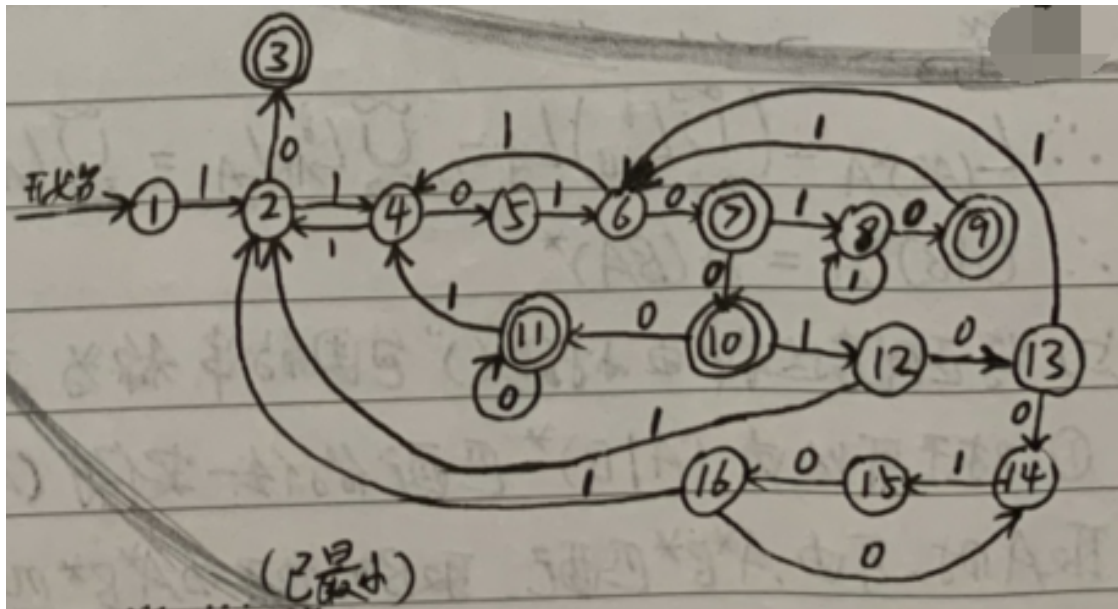 3
0
1 1 1
1 1 2 1 4 0 5 1 6 0 7 1 8 0 9
1 0 1
1 11 0 10 1 12 0 13
0
0
1
1 16 0 15 1 14
0
(已最小)